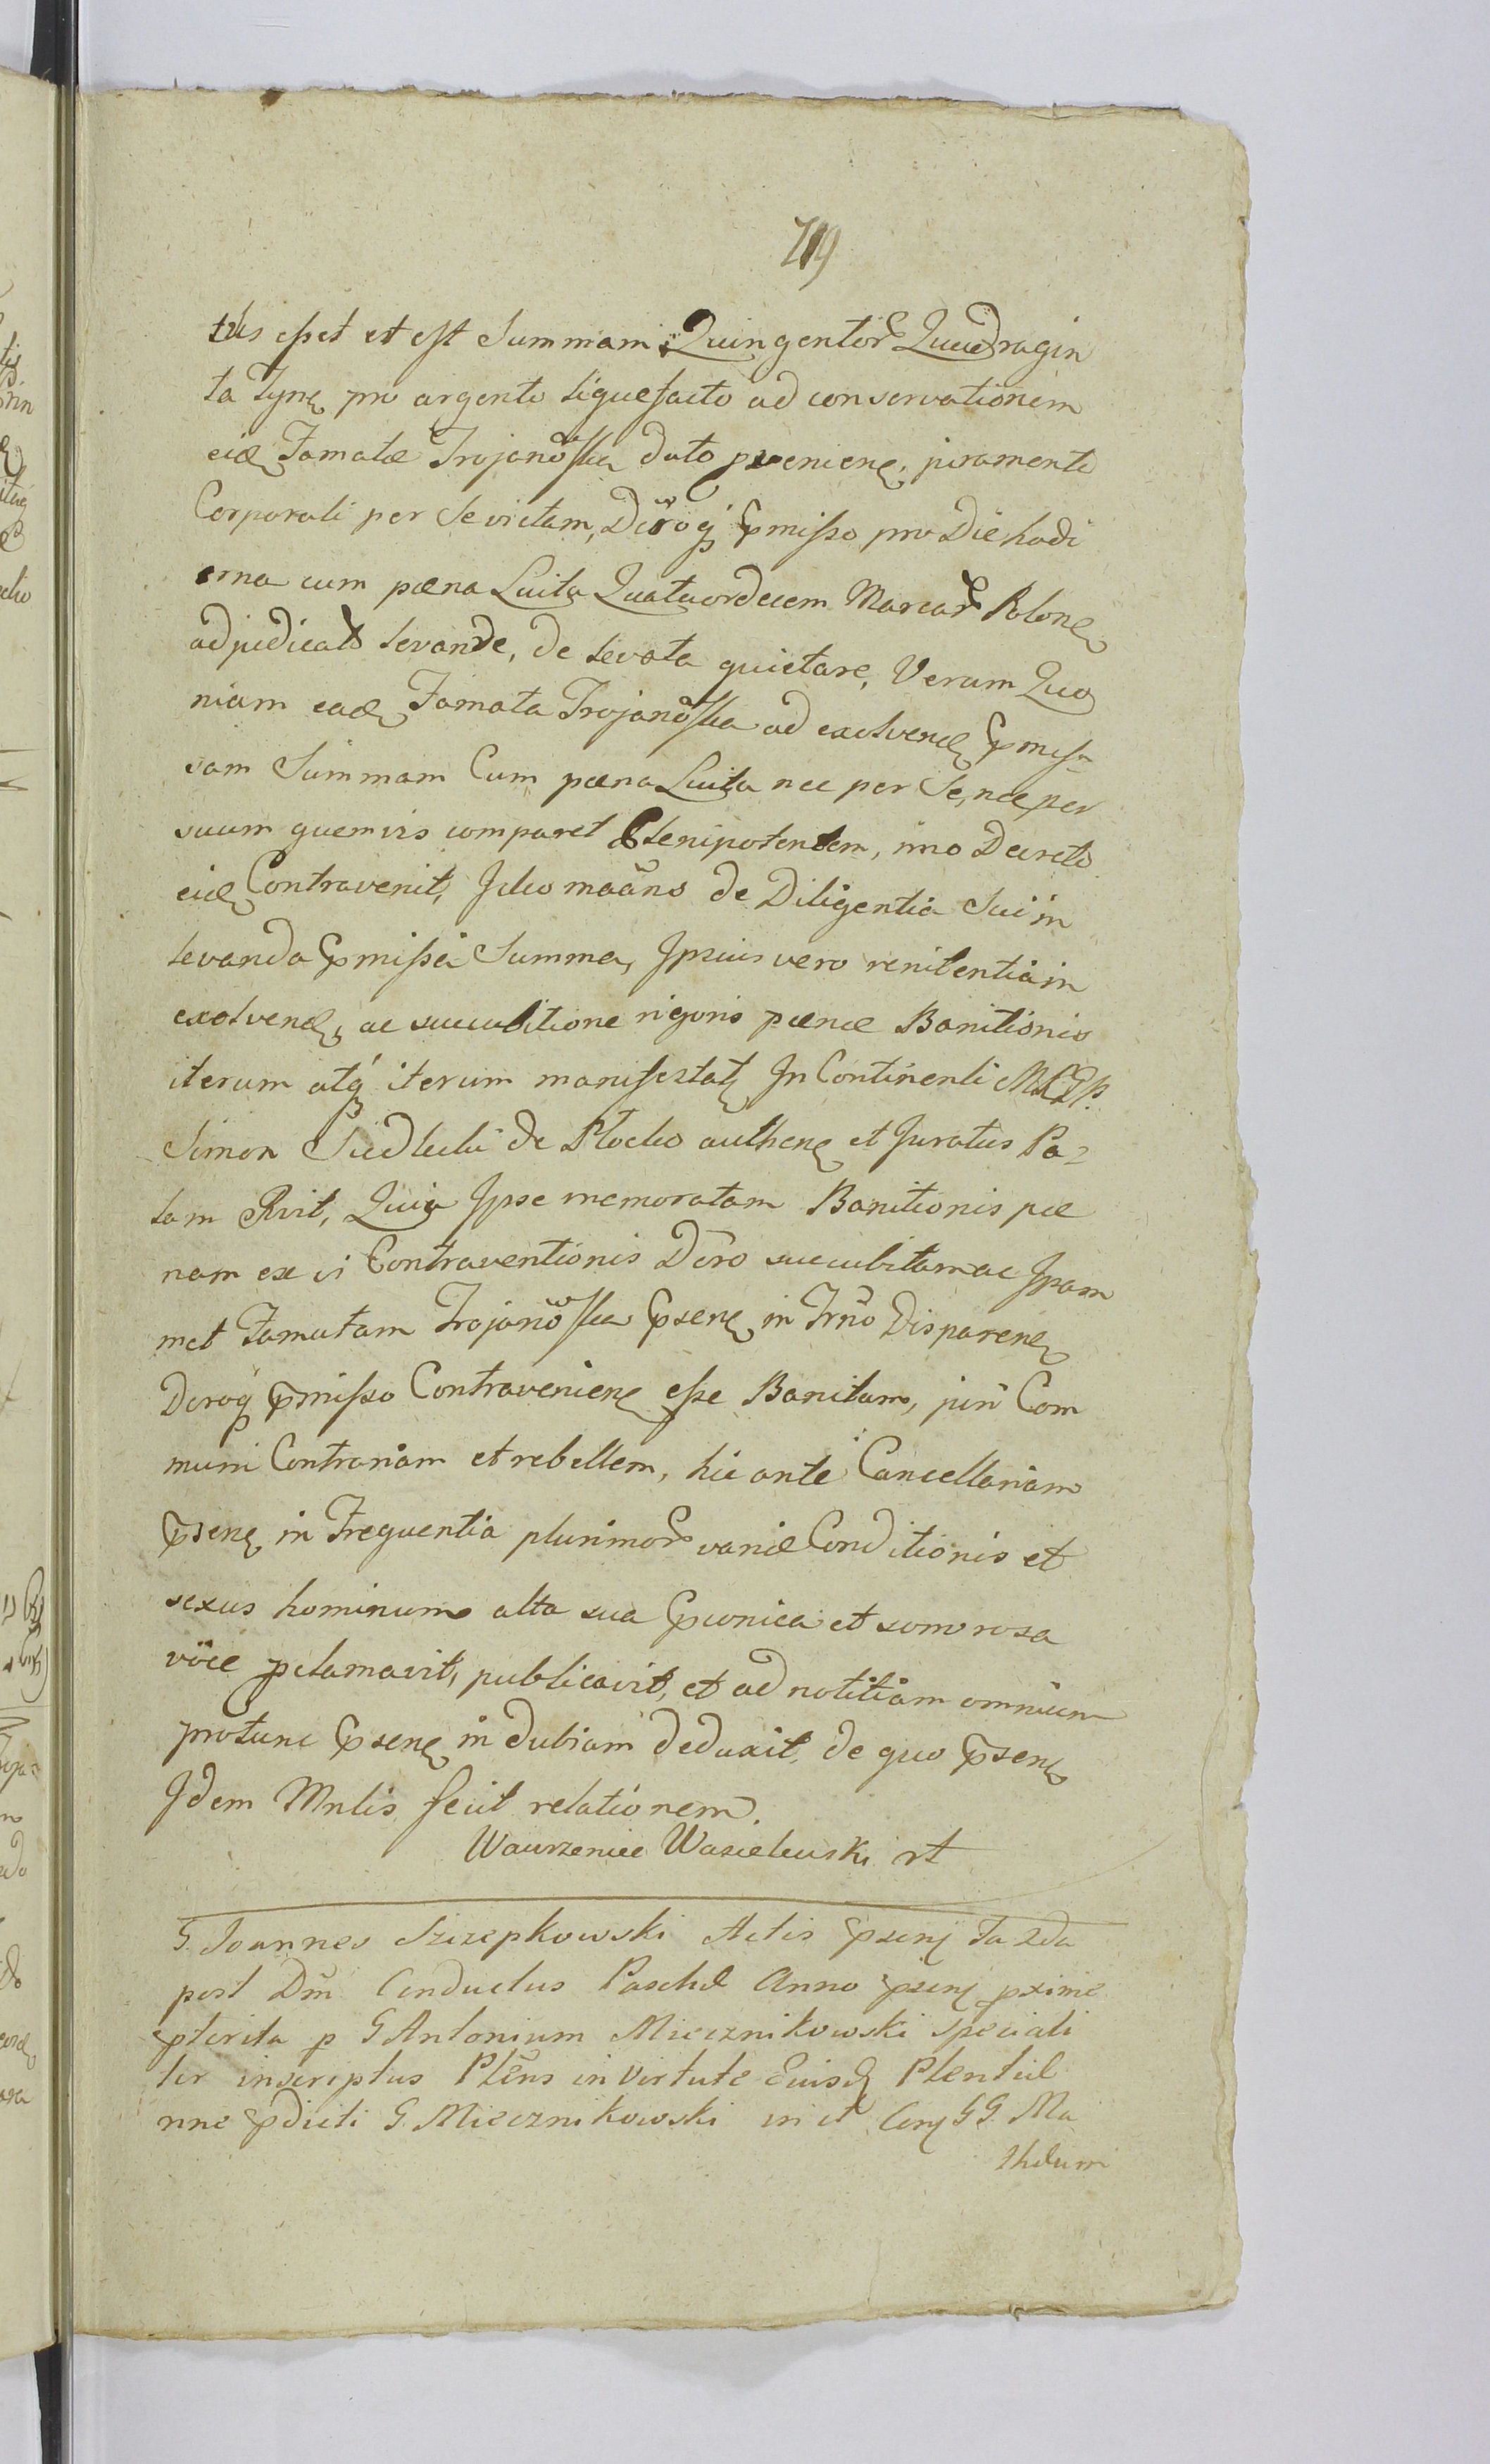 719
tus esset et est Summam Quingentor Quadragin
ta Tynf pro argento liquefacto ad conservationem
eid Famatæ Trojanowska dato pvenienf, juramento
Corporali per Se victam, Dcroq pmisso pro Die hodi
erna cum pæna Luita Quatuordecem Marcar Polonf
adjudicato levande, de levata quietare, Verum Quo
niam ead Famata Trojanowska ad exolvend pmis-
sam Summam Cum pæna Luita nec per Se, nec per
suum quemvis comparet Plenipotentem, imo Decreto
eid Contravenit, Ideo maans de Diligentia Sui in
levanda pmissa Summa, Ipsius vero renitentia in
exolvend, ac succubitione rigoris pænæ Banitionis
iterum atq iterum manifestat In Continenti
Simon Siedlecki de Plocko authenf et Juratus Pa-
lam Rvit, Quia Ipse memoratam Banitionis pæ
nam ex vi Contraventionis Dcro succubitam ac Ipsam
met Famatam Trojanowska psenf in Trno Disparenf
Dcroq pmisso Contravenienf esse Banitam, juri Com
muni Contrariam et rebellem, hic ante Cancellariam
psenf in Frequentia plurimor variæ Conditionis et
sexus hominum alta sua pconica et somorosa
voce pclamavit, publicavit, et ad notitiam omnium
protunc psenf in dubiam deduxit, de quo psenf
Idem Mnlis fecit relationem.
Wawrzeniec Wasielewski rt
G. Joannes Szczepkowski Actis psenf fa 2da
post Dm Conductus Paschæ Anno psenf pxime
pterita p G Antonium Miecznikowski speciali
ter inscriptus Plens in virtute Euisd Plentiæ
nne pdicti G. Miecznikowski in et Conf GG. Ma